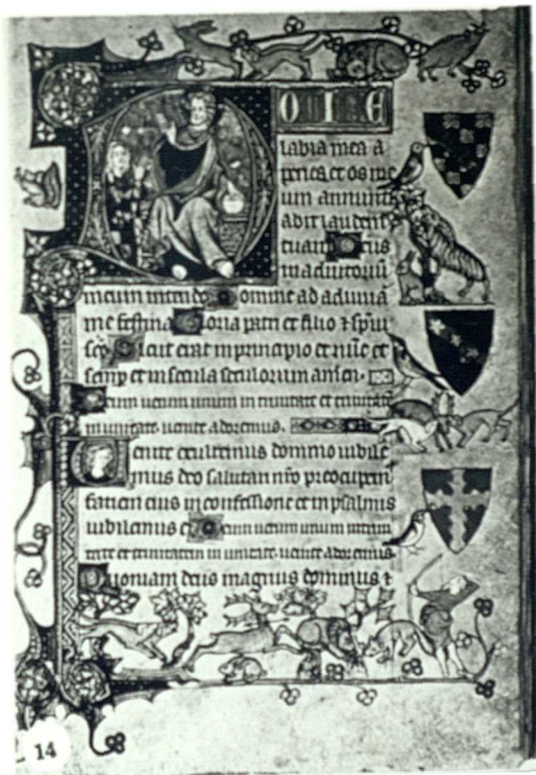 O I E
labia mea a
peries et os me
um annunti
abit laudem
tuam Deus
in adiutoriu
meum intende Domine ad adiuua
me festina Gloria patri et filio ⁊ spui
sco Sicut erat in principio et nuc et
semp et in secula seculorum amen.
in unitate uenite adoremus.
Uenite exultemus domino iubile
mus deo salutari nro preocupem
faciem eius in confessione et in psalmis
iubilemus ei
tate et trinitatem in unitate uenite adoremus
Quoniam deus magnus dominus ⁊
14